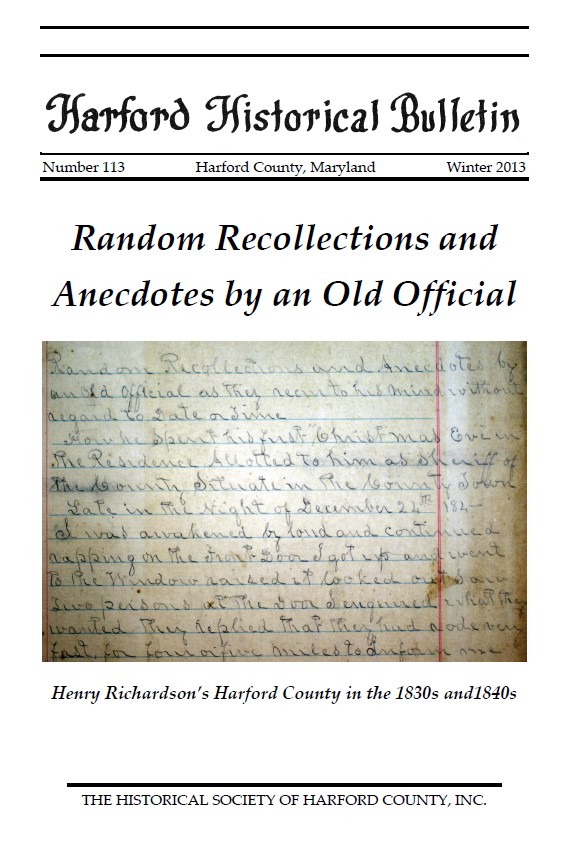 Harford Historical Bulletin
Number 113 Harford County, Maryland Winter 2013
Random Recollections and
Anecdotes by an Old Official
Random Recollections and Anecdotes by
an Old Official as they recur to his mind without
regard to Date or Time
How he spent his first Christmas Eve in
The Residence Allotted to him as Sheriff of
the County Situate in The County Town
Late in the Night of December 24th 184-
I was awakened by loud and continued
rapping on the Front Door I got up and went
to the Window raised it looked out saw
two persons at The Door I enquired what they
wanted They replied That they had rode very
fast, for four or five miles to Inform me
Henry Richardson's Harford County in the 1830s and1840s
THE HISTORICAL SOCIETY OF HARFORD COUNTY, INC.